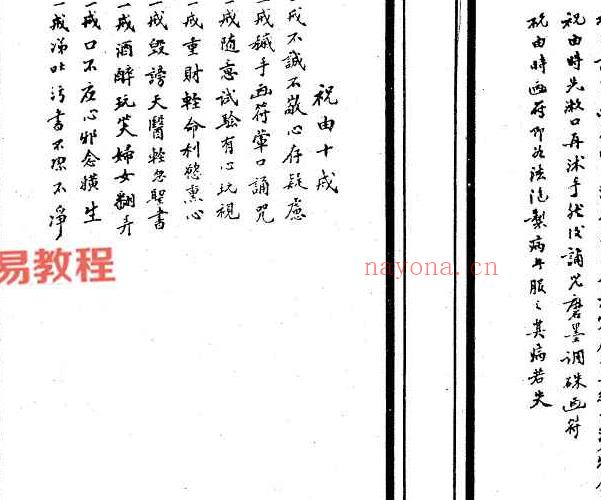 祝由時先漱口再沭手然後誦咒磨墨調硃画符
祝由時画符即為法泡製病者服之其病若失
祝由十戒
戒不誠不敬心存疑慮
一戒穢手画符葷口誦咒
一戒随意試験有心玩視
一戒重財輕命利慾熏心
一戒毀謗天醫輕忽聖書
一戒酒醉玩笑婦女翻弄
一戒口不应心邪念横生
一戒涕吐污書不潔不淨
易教程
nayona.cn